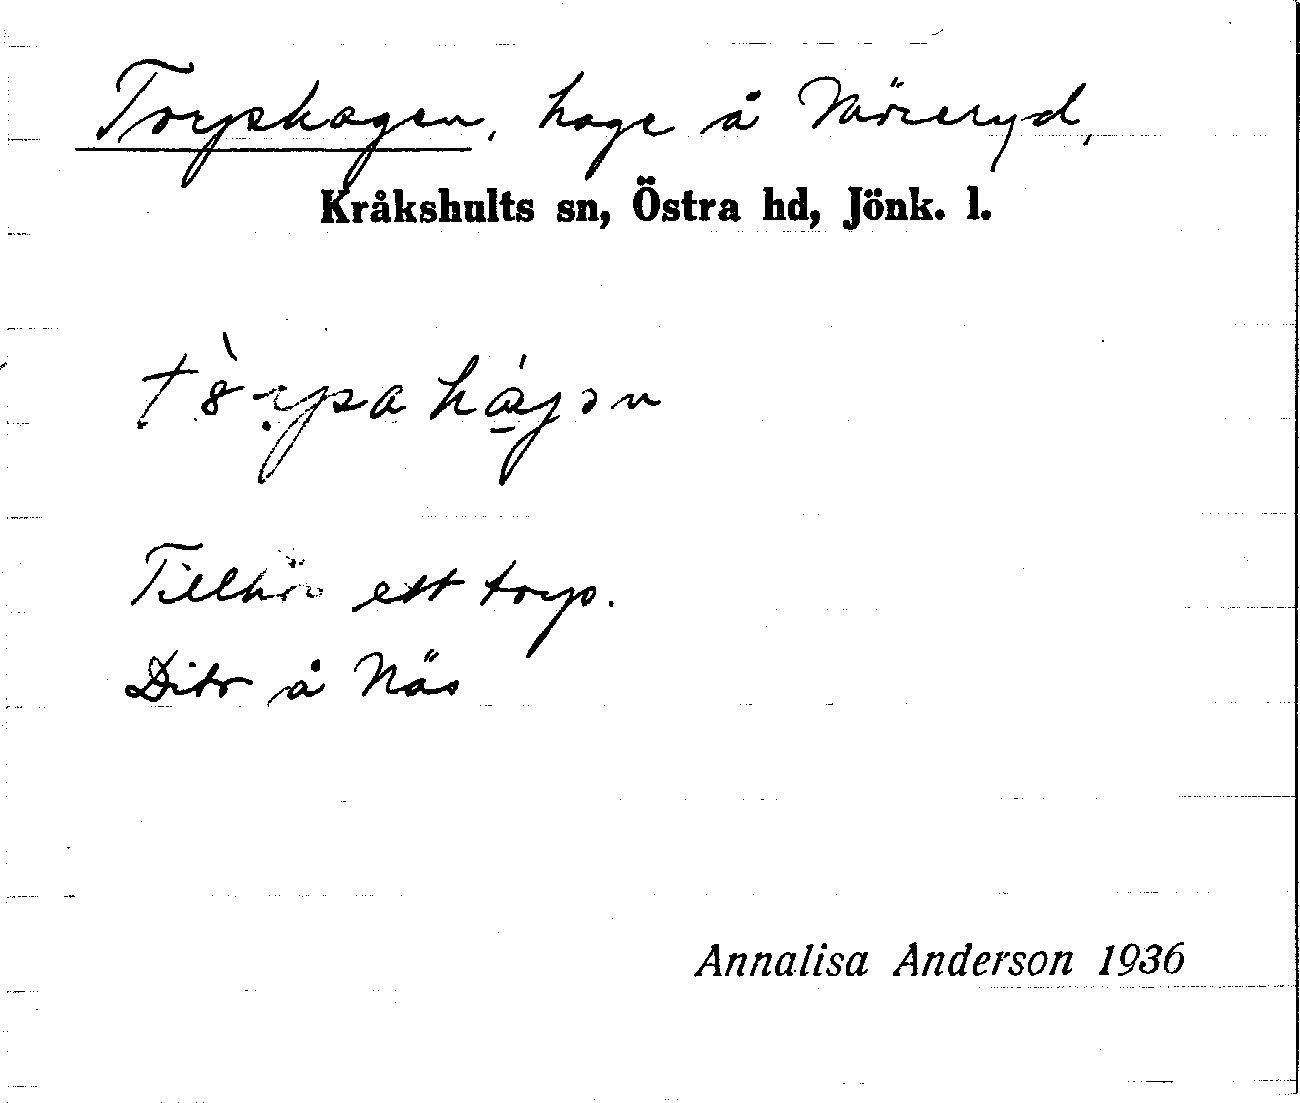 Torpshagen, hage å Möreryd,
Kråkshults sn, Östra hd, Jönk. l.
Tillhör ett torp.
Dito å Näs
Annalisa Anderson 1936